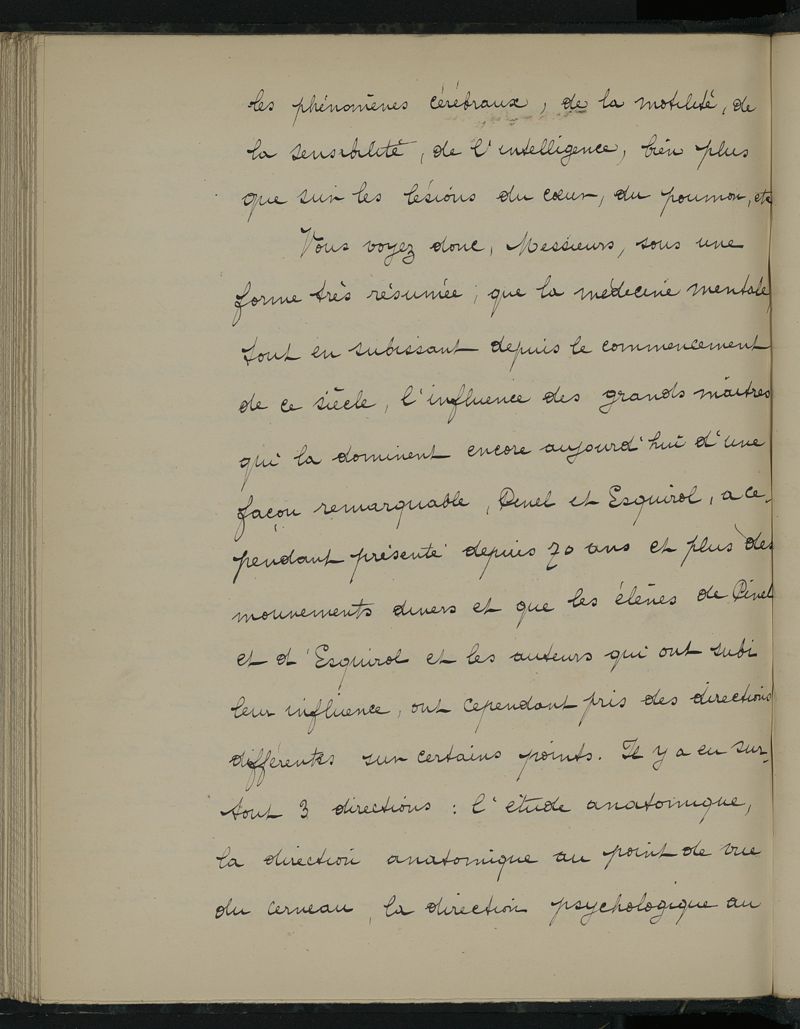 les phénomènes cérébraux, de la motilité, de
la sensibilité, de l'intelligence, bien plus
que sur les lésions du cœur, du poumon, etc
Vous voyez donc, Messieurs, sous une
forme très résumée, que la médecine mentale
tout en subissant depuis le commencement
de ce siècle, l'influence des grands maîtres
qui la dominent encore aujourd'hui d'une
façon remarquable, Pinel et Esquirol, a ce-
pendant présenté depuis 70 ans et plus des
mouvements divers et que les élèves de Pinel
et d'Esquirol et les auteurs qui ont subi
leur influence, ont cependant pris des directions
différentes sur certains points. Il y a eu sur-
tout 3 directions : l'étude anatomique,
la direction anatomique au point de vue
du cerveau, la direction psychologique au